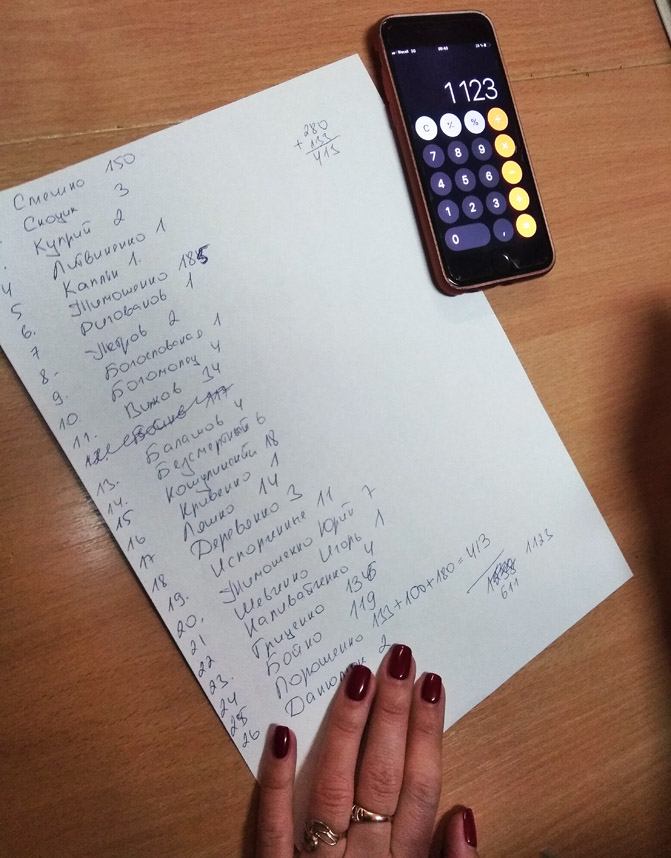 1123
C % +
7 8 9 ×
4 5 6 −
1 2 3
0 , =
280
+ 133
413
Смешко 150
Скоцик 3
Куприй 2
4 Литвиненко 1
5 Каплін 1.
6. Тимошенко 185
7 Ригованов 1
8. Петров 2
9. Богословская 1
10 Богомолец 4
11. Вилков 34
12. Бойко 117
13. Балашов 4
14. Безсмертный 6
15 Кошулинский 18
16 Кривенко 1
17 Ляшко 14
18 Деревянко 3
19. Испорченные 11
20. Тимошенко Юрий 7
21 Шевченко Игорь 1
22 Наливайченко 4
23. Гриценко 136
24 Бойко 119
25 Порошенко 133+100+180=413
26 Данилюк 2
611
1123